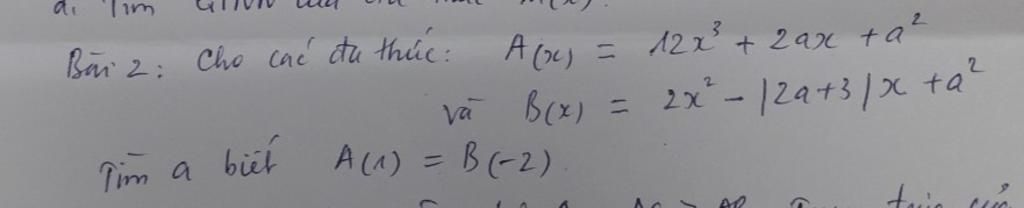 a. Tìm GTNN của
Bài 2: Cho các đa thức: A(x) = 12x³ + 2ax + a²
và B(x) = 2x² - |2a+3|x + a²
Tìm a biết A(1) = B(-2).